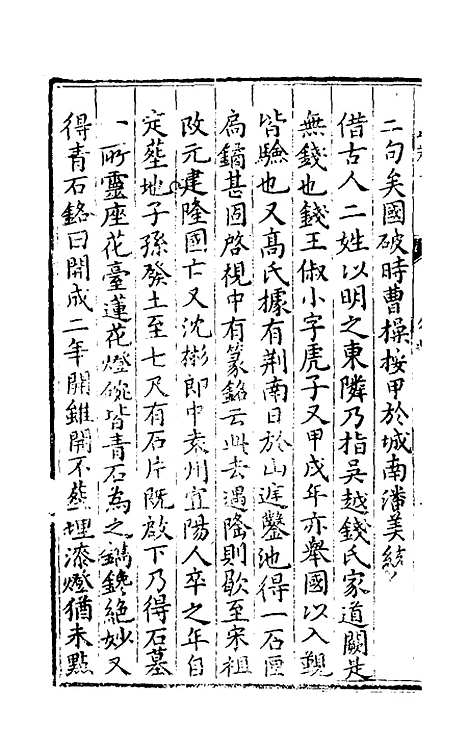 二句矣國破時曹操按甲於城南潘美統
借古人二姓以明之東隣乃指吳越錢氏家道闕是
無錢也錢王俶小字虎子又甲戌年亦舉國以入覲
皆驗也又高氏據有荆南日於山遲鑿池得一石匣
扃鐍甚固啓視中有篆銘云此去遇隆則歇至宋祖
改元建隆國亡又沈彬郎中袁州宜陽人卒之年自
定塟地子孫發土至七尺有石片既啟下乃得石墓
一所靈座花臺蓮花燈碗皆青石為之鐫鑱絕妙又
得青石銘曰開成二年開雖開不塟埋漆燈猶未點